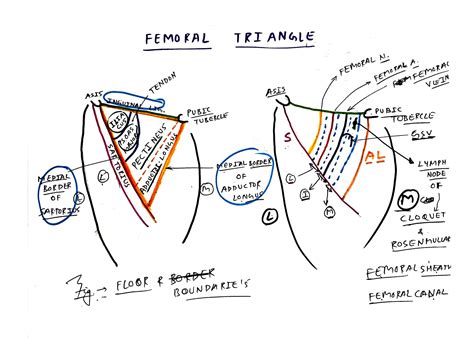 FEMORAL TRIANGLE
TENDON
ASIS
INGUINAL LIG.
PUBIC
TUBERCLE
ILIA
CUS
PSOAS
MAJOR
PECTINEUS
ADDUCTOR LONGUS
SARTORIUS
MEDIAL
BORDER
OF
SARTORIUS
L
M
MEDIAL BORDER
OF
ADDUCTOR
LONGUS
Fig. → FLOOR & BORDER
BOUNDARIE'S
FEMORAL N.
FEMORAL A.
FEMORAL
VEIN
ASIS
PUBIC
TUBERCLE
GSV
S
AL
LYMPH
NODE
OF
CLOQUET
&
ROSENMULLAR
L
I
M
L
M
FEMORAL SHEATH
FEMORAL CANAL